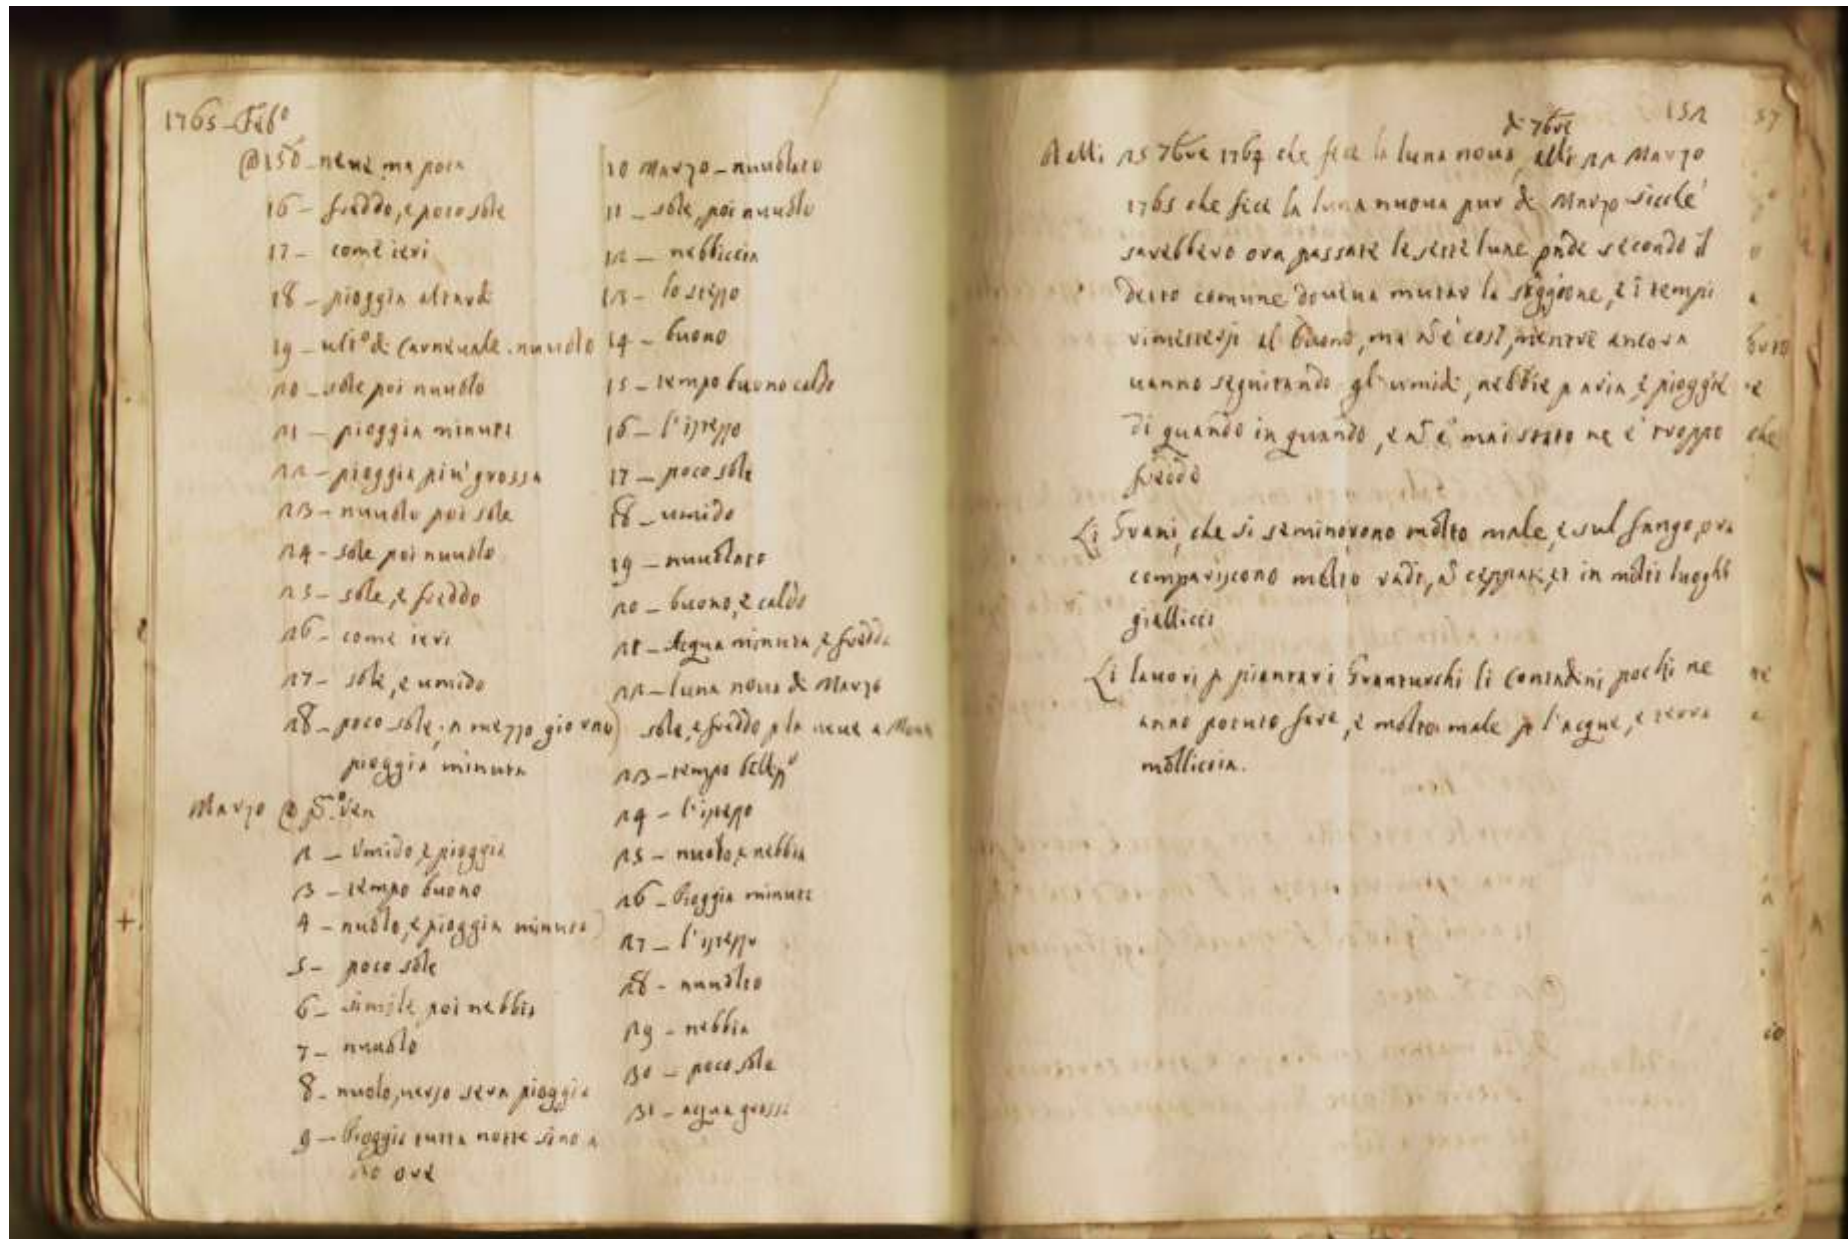 1765 - Feb.º
@ 15 - neve ma poca
16 - freddo, e poco sole
17 - come ieri
18 - pioggia
19 - ult.º di Carneuale. nuuolo
20 - sole poi nuuolo
21 - pioggia minuta
22 - pioggia piu' grossa
23 - nuuolo poi sole
24 - sole poi nuuolo
25 - sole, e freddo
26 - come ieri
27 - sole, e umido
28 - poco sole, a mezzo giorno
pioggia minuta
Marzo @ p.º Ven
2 - Umido, e pioggia
3 - tempo buono
4 - nuolo, e pioggia minuta
5 - poco sole
6 - simile, poi nebbia
7 - nuuolo
8 - nuolo, uerso sera pioggia
9 - Pioggia tutta notte sino a
20 ore
10 Marzo - nuuolato
11 - sole, poi nuuolo
12 - nebbiccia
13 - lo stesso
14 - buono
15 - tempo buono caldo
16 - l'istesso
17 - poco sole
18 - umido
19 - nuuolato
20 - buono, e caldo
21 - Acqua minuta, e fredda
22 - luna noua di Marzo
sole, e freddo p la neue a
23 - tempo bellss.º
24 - l'istesso
25 - nuolo, e nebbia
26 - Pioggia minuta
27 - l'istesso
28 - nuuolto
29 - nebbia
30 - poco sole
31 - acqua grossa
152
di 7bre
Dalli 25 7bre 1764 che fece la luna noua, alli 22 Marzo
1765 che fece la luna nuoua pur di Marzo sicche'
sarebbero ora passate le sette lune onde secondo il
detto comune doueua mutar la staggione, e i tempi
rimettersi al buono, ma ñ è così, mentre ancora
uanno seguitando gl'umidi, nebbie p aria, e pioggie
di quando in quando, e ñ è mai stato ne è troppo
freddo
Li Grani, che si seminorono molto male, e sul fango, ora
compariscono molto radi, ñ et in molti luoghi
giallicci
Li lauori p piantari Granturchi li Contadini pochi ne
anno potuto fare, e molto male p l'acque, e terra
molliccia.